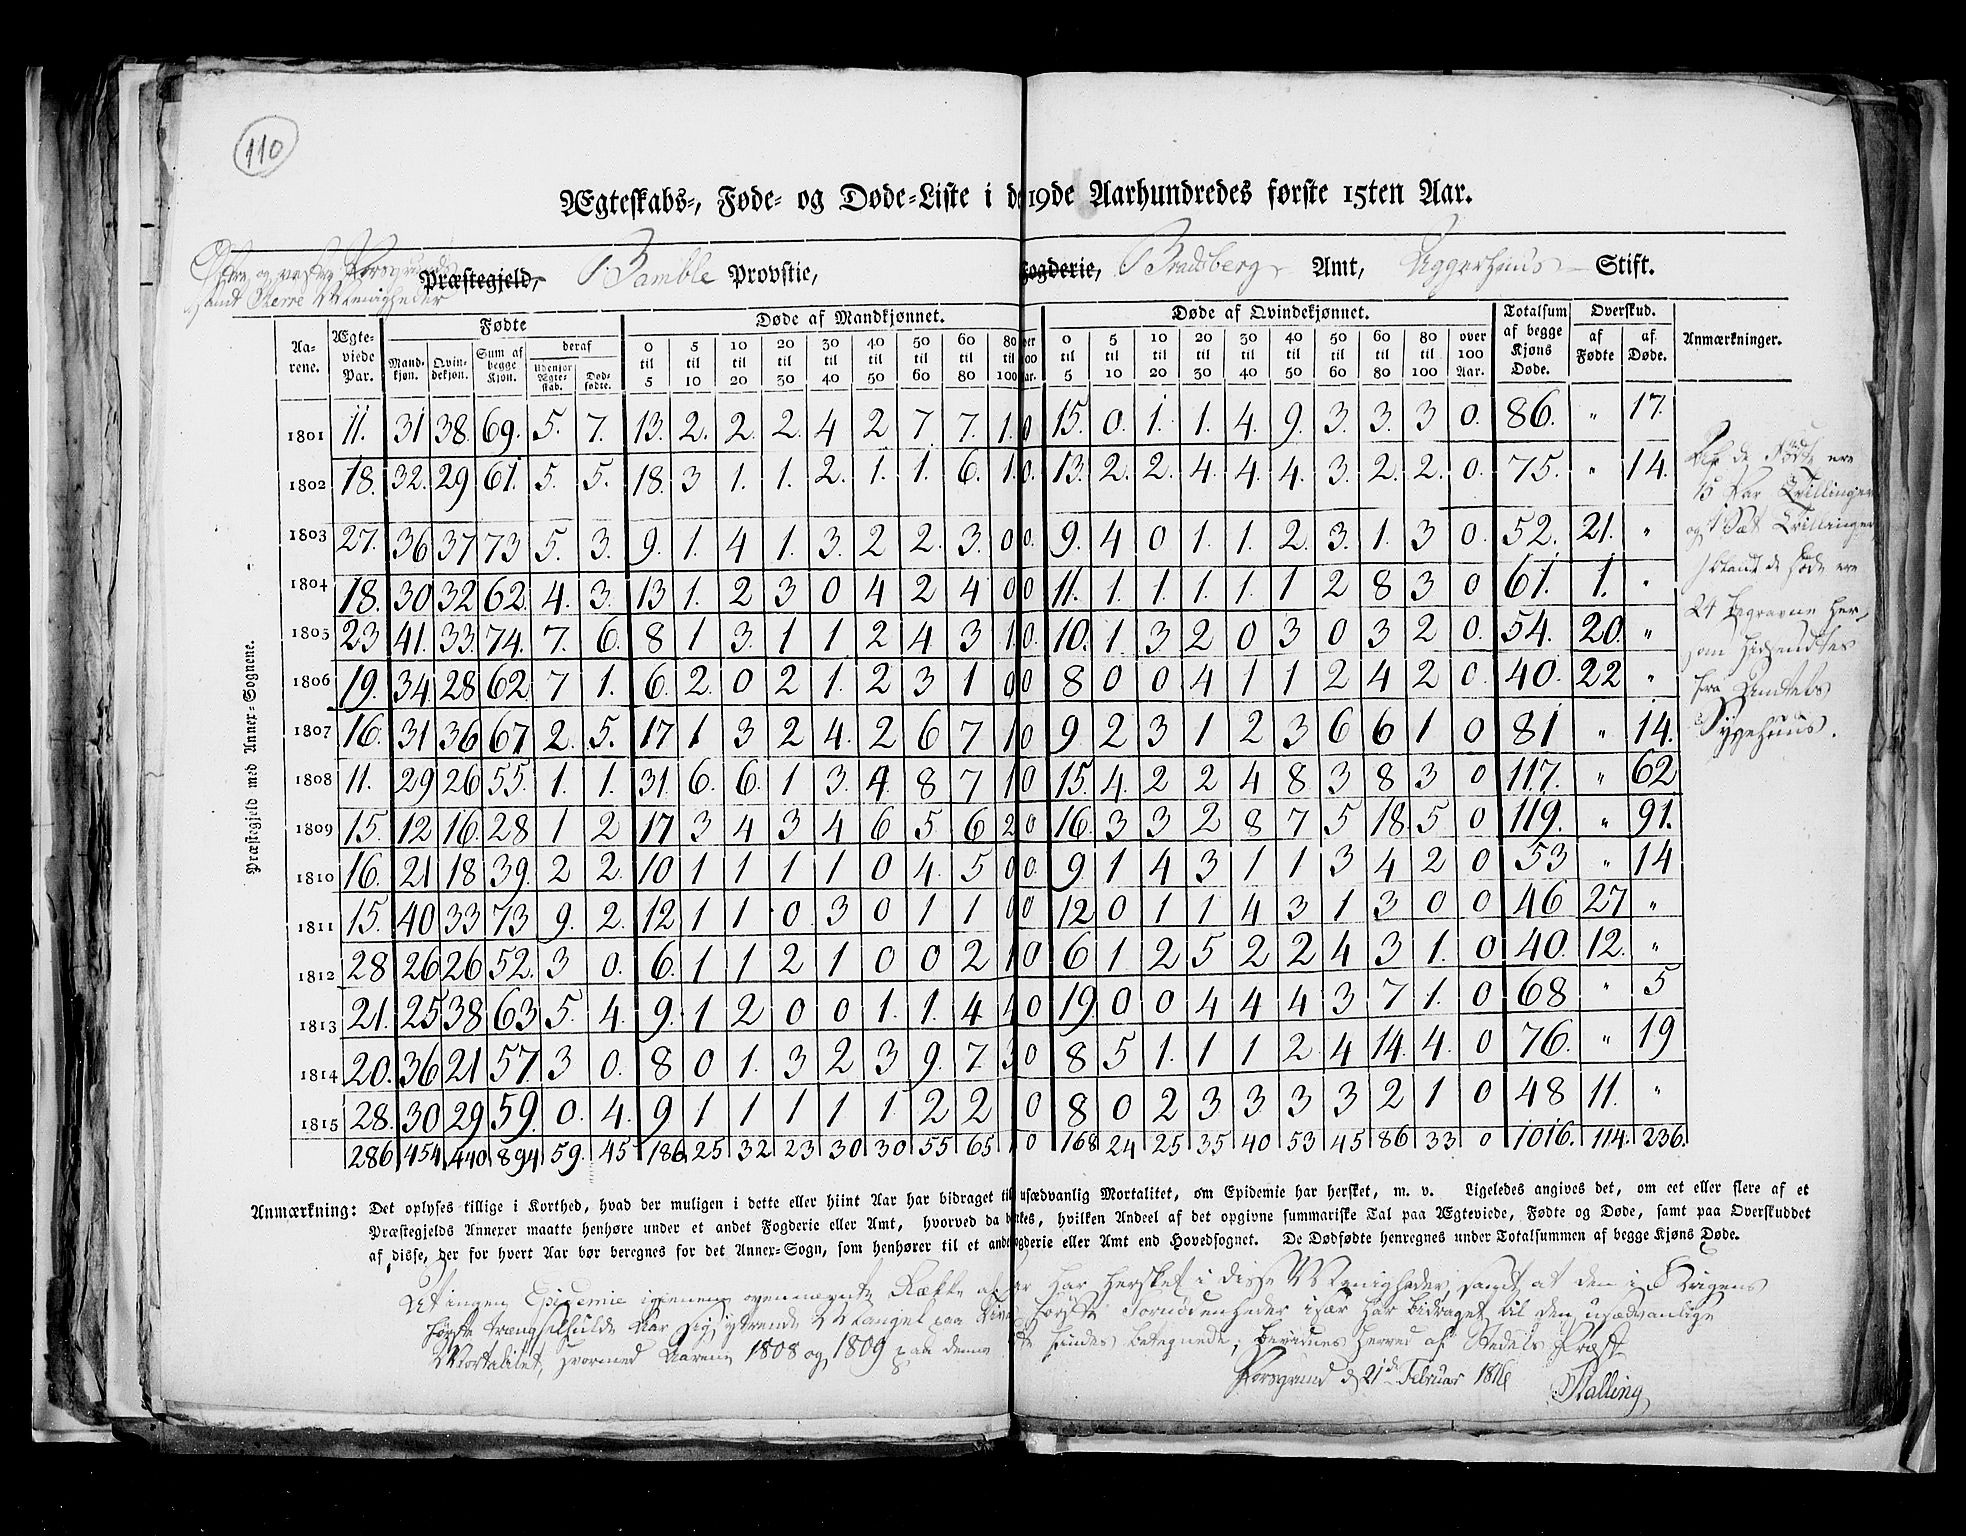 110
Ægteskabs-, Føde- og Døde-Liste i d 19de Aarhundredes første 15ten Aar.
Østre og vestre Porsgrunds
samt Menigheder
Præstegjeld, Bamble Provstie, Fogderie, Bradsberg Amt, Aggerhuus Stift.
Aarene. Ægteviede Par. Fødte Døde af Mandkjønnet. Døde af Qvindekjønnet. Totalsum af begge Kjøns Døde. Overskud. Anmærkninger.
Mandkjøn. Qvindekjøn. Sum af begge Kjøn. deraf Udenfor Ægteskab. Dødfødte. 0 til 5 5 til 10 10 til 20 20 til 30 30 til 40 40 til 50 50 til 60 60 til 80 80 til 100 0 til 5 5 til 10 10 til 20 20 til 30 30 til 40 40 til 50 50 til 60 60 til 80 80 til 100 over 100 Aar. af Fødte af Døde.
Præstegjeld med Annex-Sognene.
1801 11. 31 38. 69. 5. 7. 13. 2. 2. 2. 4 2 7 7. 1. 0 15. 0. 1. 1. 4. 9. 3. 3. 3 0. 86. " 17.
1802 18. 32. 29 61. 5. 5. 18. 3 1. 1. 2. 1. 1. 6. 1. 0. 13. 2. 2. 4. 4. 4. 3. 2. 2. 0. 75. " 14.
1803 27. 36 37 73 5. 3. 9. 1. 4 1. 3. 2 2. 3. 0 0. 9. 4 0 1. 1. 2. 3. 1. 3 0. 52. 21. "
1804 18. 30 32 62. 4. 3. 13 1. 2 3 0 4 2 4 0 0 11. 1. 1. 1. 1. 1 2 8 3 0 61. 1. "
1805 23 41. 33. 74. 7. 6. 8 1 3. 1 1 2 4 3 1. 0. 10. 1. 3 2 0 3 0 3 2 0. 54. 20. "
1806 19. 34 28 62. 7 1. 6. 2. 0 2 1. 2 3 1 0 0 8 0 0 4 1 1 2 4 2 0. 40. 22 "
1807 16. 31 36 67 2. 5. 17 1 3 2 4. 2 6 7 1 0 9. 2 3 1 2 3 6 6 1 0 81 " 14.
1808 11. 29 26 55. 1. 1. 31. 6. 6. 1 3. 4. 8 7 1 0 15. 4. 2 2 4 8 3 8 3 0 117. " 62
1809 15. 12 16. 28 1 2 17 3 4 3 4 6 5 6 2 0 16. 3 3 2 8 7 5 18. 5 0 119. " 91.
1810 16. 21 18 39. 2 2. 10 1 1 1 1 0 4. 5 0 0. 9 1 4 3 1 1 3 4 2 0 53 " 14
1811 15. 40 33 73 9. 2. 12 1 1 0 3 0 1 1 0 0 12 0 1 1 4 3 1 3 0 0 46 27 "
1812 28 26 26 52. 3 0. 6. 1 1 2 1 0 0 2 1 0 6 1 2 5 2 2 4 3 1. 0 40. 12. "
1813 21. 25 38 63 5. 4. 9. 1 2 0 0 1. 1. 4 4 0 19. 0 0 4 4 4 3 7 1. 0 68 " 5
1814 20. 36 21 57. 3 0. 8 0 1. 3 2 3 9. 7. 3 0 8 5 1. 1 1 2 4 14. 4. 0 76. " 19
1815 28. 30 29 59. 0. 4. 9 1 1 1 1. 1. 2 2 0 8 0 2 3 3. 3 3 2 1 0 48 11. "
286 454 440 894 59. 45 186 25 32 23 30 30 55 65 0 168 24 25 35 40 53 45 86 33 0 1016. 114. 236.
Af de Fødte ere
15 Par Tvillinger
og 1 Sæt Trillinger
iblandt de Døde ere
24 begravne her,
som hidsendtes
fra Amtets
Sygehuus.
Anmærkning: Det oplyses tillige i Korthed, hvad der muligen i dette eller hiint Aar har bidraget til usædvanlig Mortalitet, om Epidemie har hersket, m. v. Ligeledes angives det, om eet eller flere af et
Præstegjelds Annexer maatte henhøre under et andet Fogderie eller Amt, hvorved da , hvilken Andeel af det opgivne summariske Tal paa Ægteviede, Fødte og Døde, samt paa Overskuddet
af disse, der for hvert Aar bør beregnes for det Annex-Sogn, som henhører til et andt Fogderie eller Amt end Hovedsognet. De Dødfødte henregnes under Totalsummen af begge Kjøns Døde.
At ingen Epidemie igjennem ovennævnte Række af Aar har hersket i disse Menigheder, samt at den i Krigens
første trængselfulde Aar sig yttrende Mangel paa Livets første Fornødenheder især har bidraget til den usædvanlige
Mortalitet, hvormed Aarene 1808 og 1809 paa denne findes betegnede; bevidnes herved af Stedets Præst
Porsgrund d 21de Februar 1816 Stalling